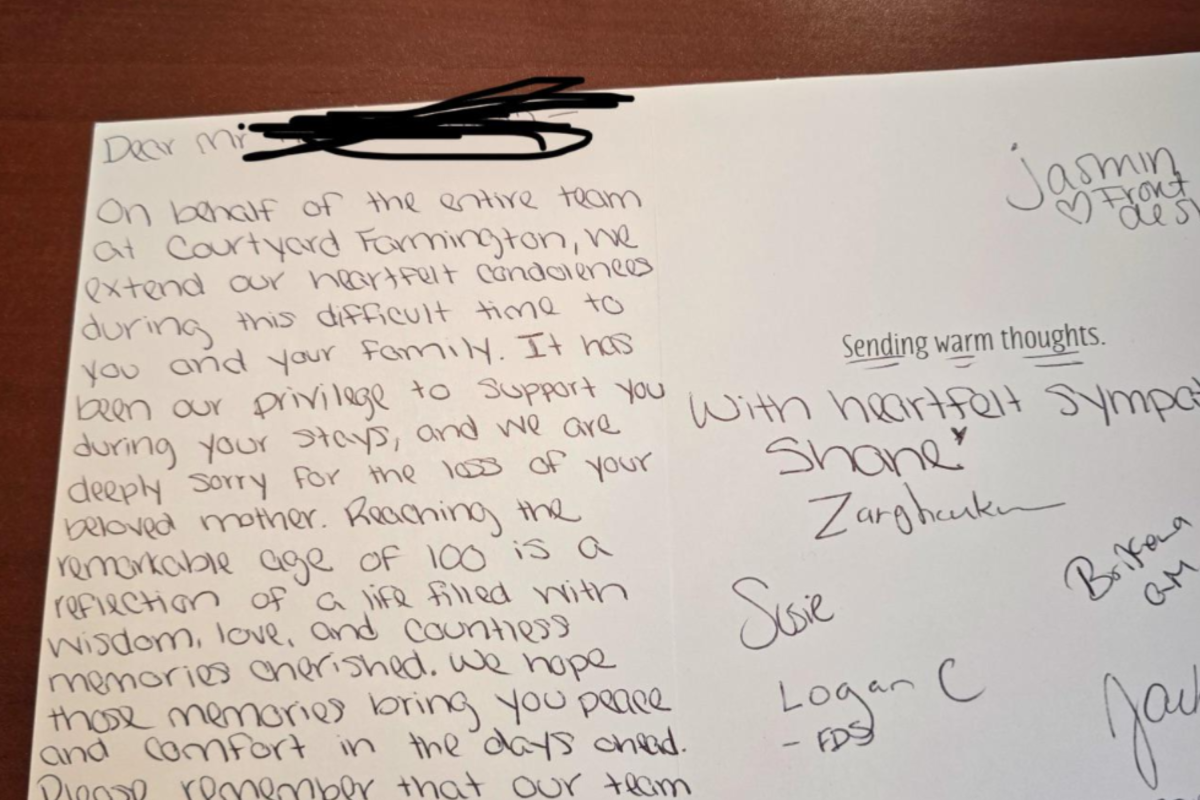 Dear Mr
On behalf of the entire team
at Courtyard Farmington, we
extend our heartfelt condolences
during this difficult time to
you and your family. It has
been our privilege to support you
during your stays, and we are
deeply sorry for the loss of your
beloved mother. Reaching the
remarkable age of 100 is a
reflection of a life filled with
wisdom, love, and countless
memories cherished. We hope
those memories bring you peace
and comfort in the days ahead.
Please remember that our team
Jasmin
♡ Front
des
Sending warm thoughts.
With heartfelt sympat
Shane
Susie
GM
Logan C
- FDS